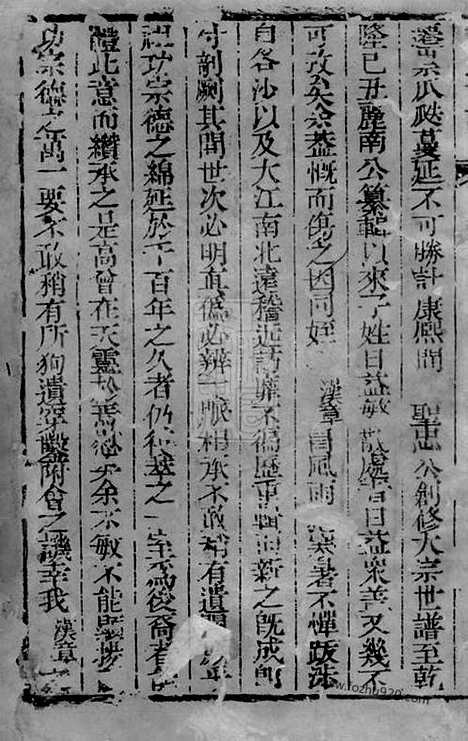 宗瓜瓞蔓延不可勝計康熙間 聖忠公創修大宗世譜至乾
隆己丑麗南公纂輯以來子姓日益敏 日益眾善又幾不
可攷矣余葢慨而傷之因同姪 漢章 冒風雨 寒暑不憚跋涉
自各沙以及大江南北遠稽近訪靡不徧歷重輯而新之既成
付剞劂其間世次必明真偽必辨一脈相承不敢稍有遺
祖功宗德之綿延於千百年之久者仍 之 室為後裔者
體此意而纘承之是高曾在天靈 余不敏不能顯揚
功宗德之萬一要不敢稍有所徇遺穿鑿附會之譏幸我 漢章
www.fozhu920.com